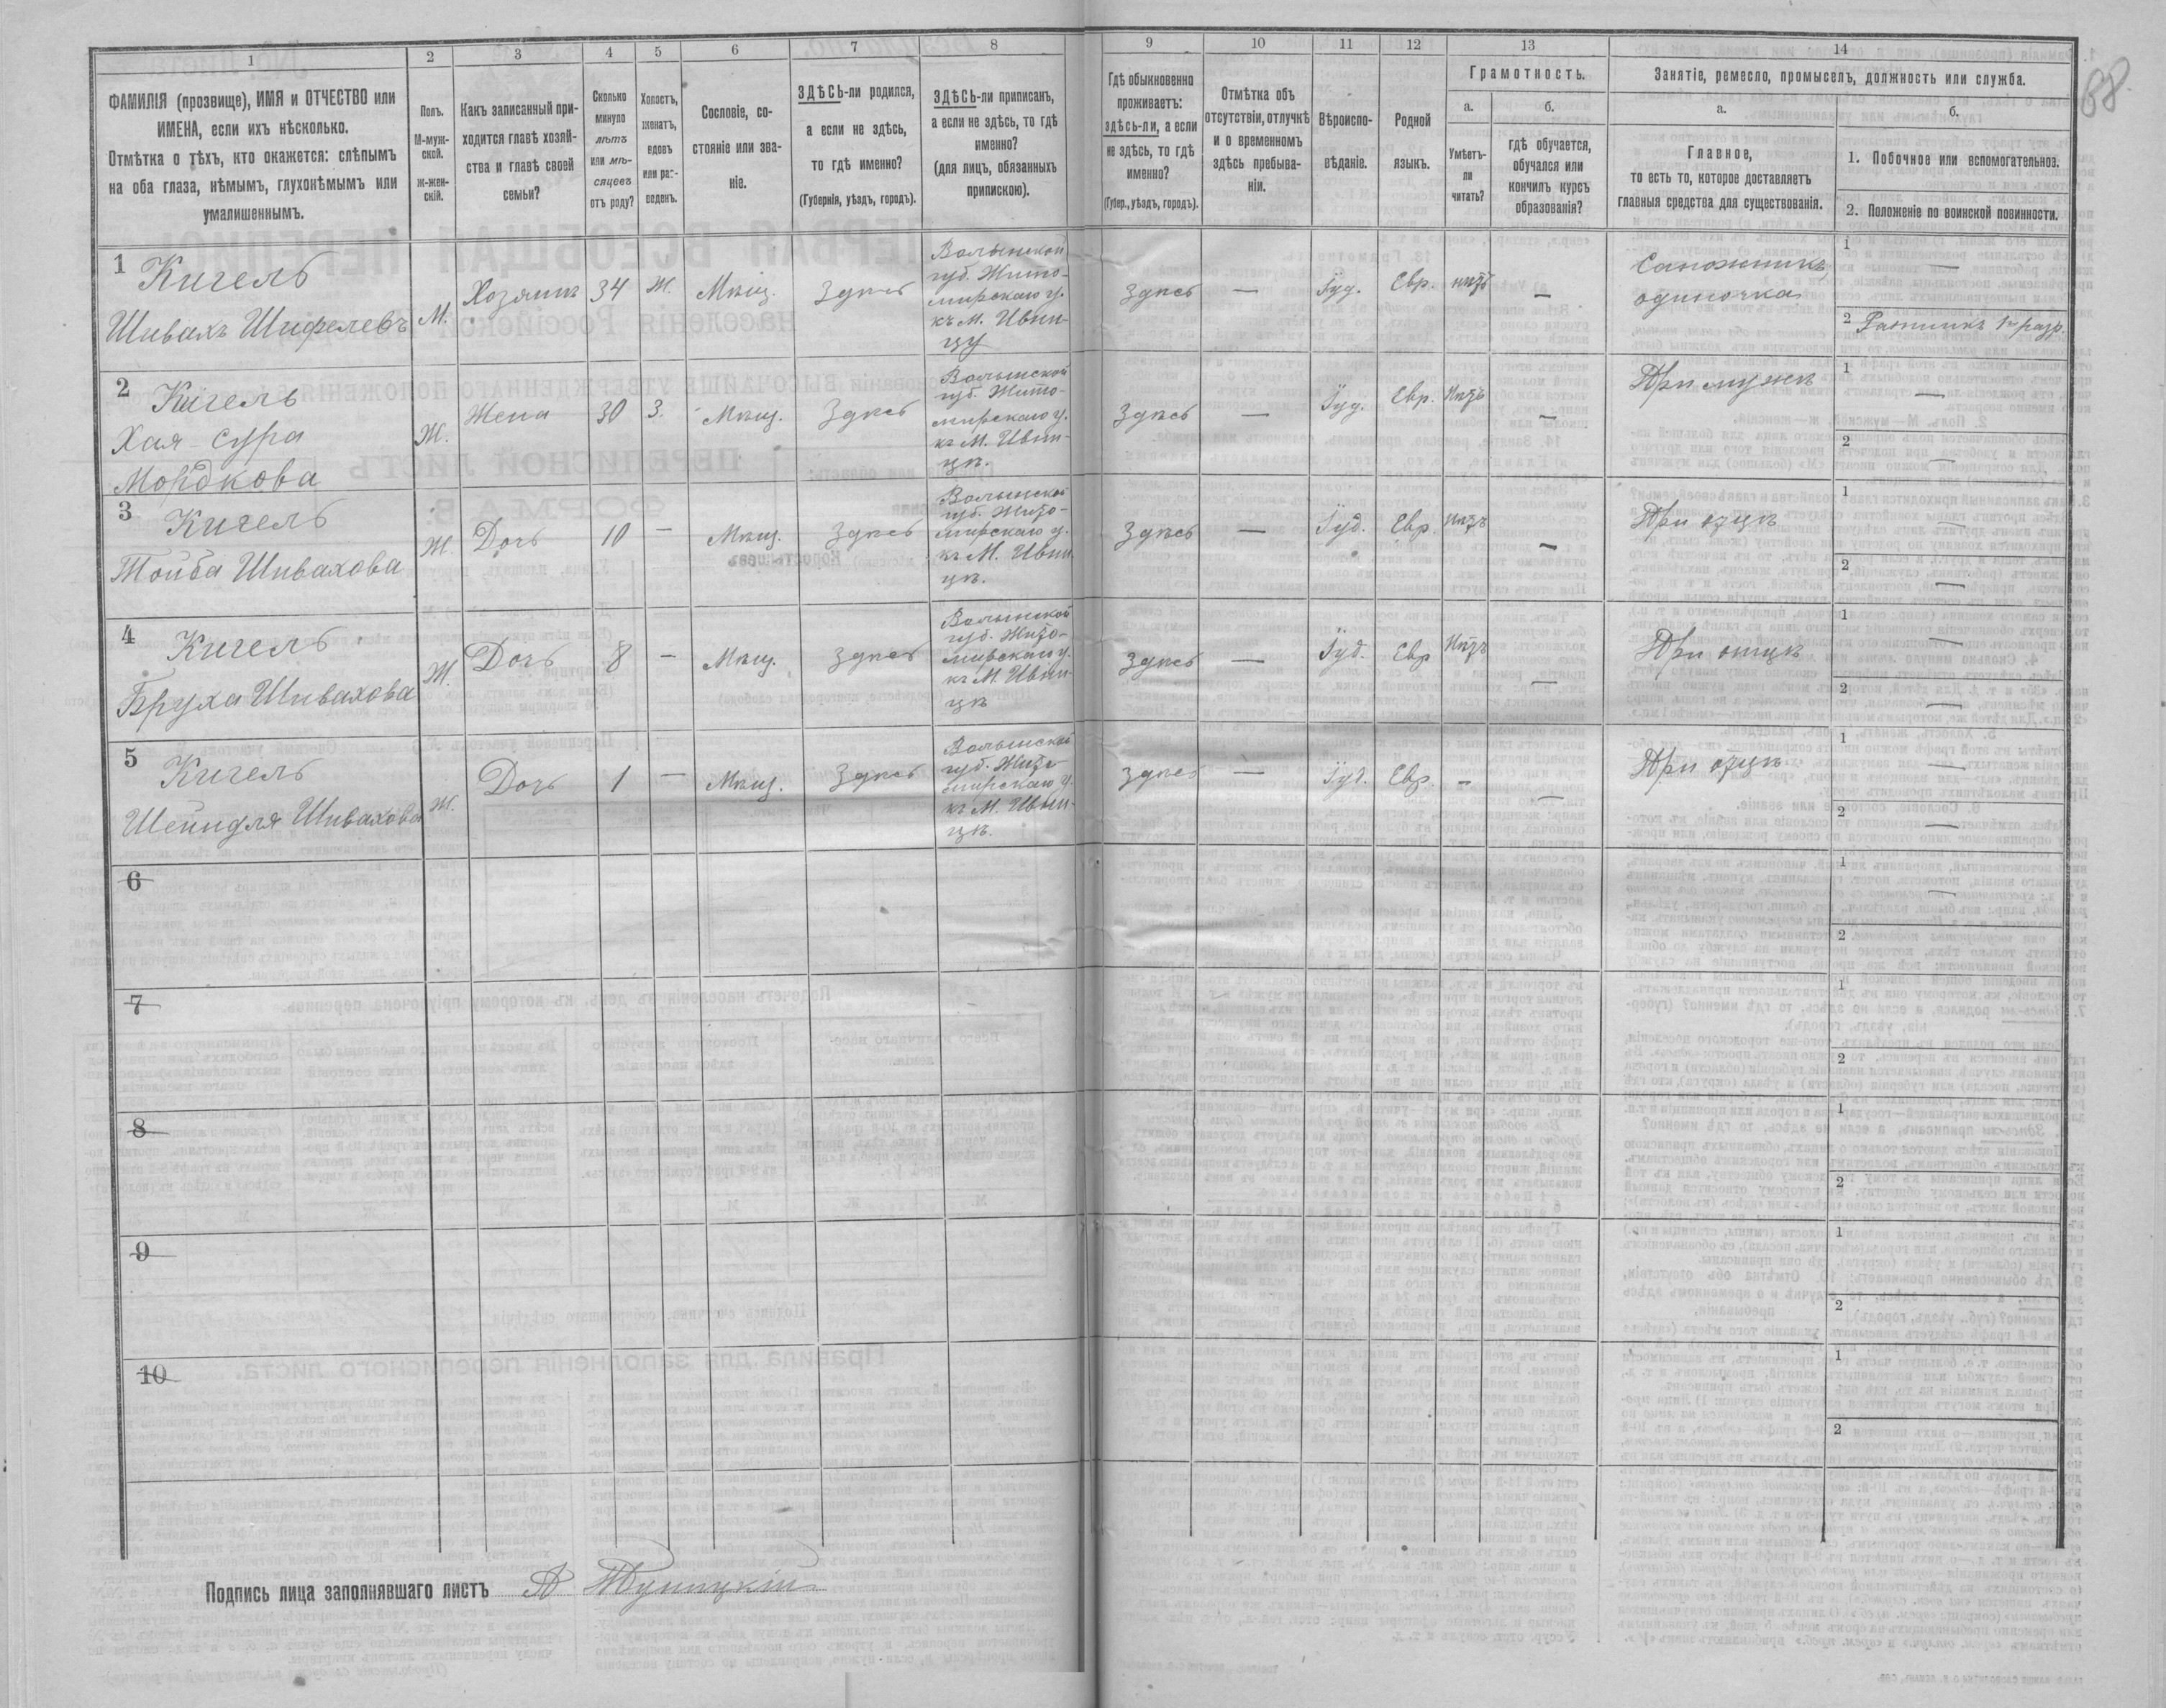 88.
1
2
3
4
5
6
7
8
9
10
11
12
13
14
ФАМИЛІЯ (прозвище), ИМЯ и ОТЧЕСТВО или
ИМЕНА, если ихъ нѣсколько.
Отмѣтка о тѣхъ, кто окажется: слѣпымъ
на оба глаза, нѣмымъ, глухонѣмымъ или
умалишеннымъ.
Полъ.
М-муж-
ской.
ж-жен-
скій.
Какъ записанный при-
ходится главѣ хозяй-
ства и главѣ своей
семьи?
Сколько
минуло
лѣтъ
или мѣ-
сяцевъ
отъ роду?
Холостъ,
женатъ,
вдовъ
или раз-
веденъ.
Сословіе, со-
стояніе или зва-
ніе.
ЗДѢСЬ-ли родился,
а если не здѣсь,
то гдѣ именно?
(Губернія, уѣздъ, городъ).
ЗДѢСЬ-ли приписанъ,
а если не здѣсь, то гдѣ
именно?
(для лицъ, обязанныхъ
припискою).
Гдѣ обыкновенно
проживаетъ:
здѣсь-ли, а если
не здѣсь, то гдѣ
именно?
(Губер., уѣздъ, городъ).
Отмѣтка объ
отсутствіи, отлучкѣ
и о временномъ
здѣсь пребыва-
ніи.
Вѣроиспо-
вѣданіе.
Родной
языкъ.
Грамотность.
а.
Умѣетъ-
ли
читать?
б.
гдѣ обучается,
обучался или
кончилъ курсъ
образованія?
Занятіе, ремесло, промыселъ, должность или служба.
а.
Главное,
то есть то, которое доставляетъ
главныя средства для существованія.
б.
1. Побочное или вспомогательное.
2. Положеніе по воинской повинности.
1
Кигель
Шивахъ Шифелевъ
М.
Хозяинъ
34
Ж.
Мѣщ.
Здѣсь
Волынской
губ. Жито-
мирскаго у.
къ М. Ивни-
цу
Здѣсь
—
Іуд.
Евр.
нѣтъ
—
Сапожникъ
одиночка
1
—
2 Ратникъ 1 разр.
2
Кигель
Хая-Сура
Мордкова
Ж.
Жена
30
З.
Мѣщ.
Здѣсь
Волынской
губ. Жито-
мирскаго у.
къ М. Ивни-
цѣ.
Здѣсь
—
Іуд.
Евр.
Нѣтъ
—
При мужѣ
1
—
2
—
3
Кигель
Тойба Шивахова
Ж.
Дочь
10
—
Мѣщ.
Здѣсь
Волынской
губ. Жито-
мирскаго у.
къ М. Ивни-
цѣ.
Здѣсь
—
Іуд.
Евр.
Нѣтъ
—
При отцѣ
1
—
2
—
4
Кигель
Бруха Шивахова
Ж.
Дочь
8
—
Мѣщ.
Здѣсь
Волынской
губ. Жито-
мирскаго у.
къ М. Ивни-
цѣ
Здѣсь
—
Іуд.
Евр
Нѣтъ
—
При отцѣ
1
—
2
—
5
Кигель
Шейндля Шивахова
Ж.
Дочь
1
—
Мѣщ.
Здѣсь
Волынской
губ. Жито-
мирскаго у.
къ М. Ивни-
цѣ.
Здѣсь
—
Іуд.
Евр.
—
—
При отцѣ
1
—
2
—
6
1
—
2
7
1
2
8
1
2
9
1
2
10
1
2
Подпись лица заполнявшаго листъ